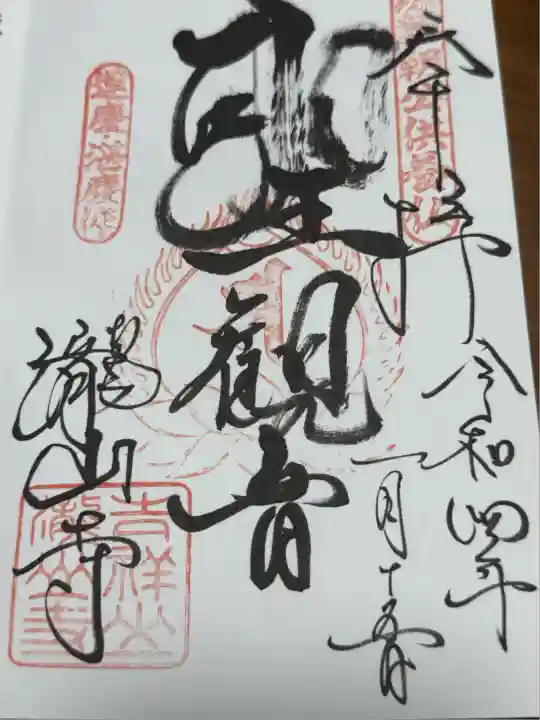 奉拝
令和四年
一月十五日
聖観音
運慶・湛慶作
瀧山寺
吉祥山
瀧山寺